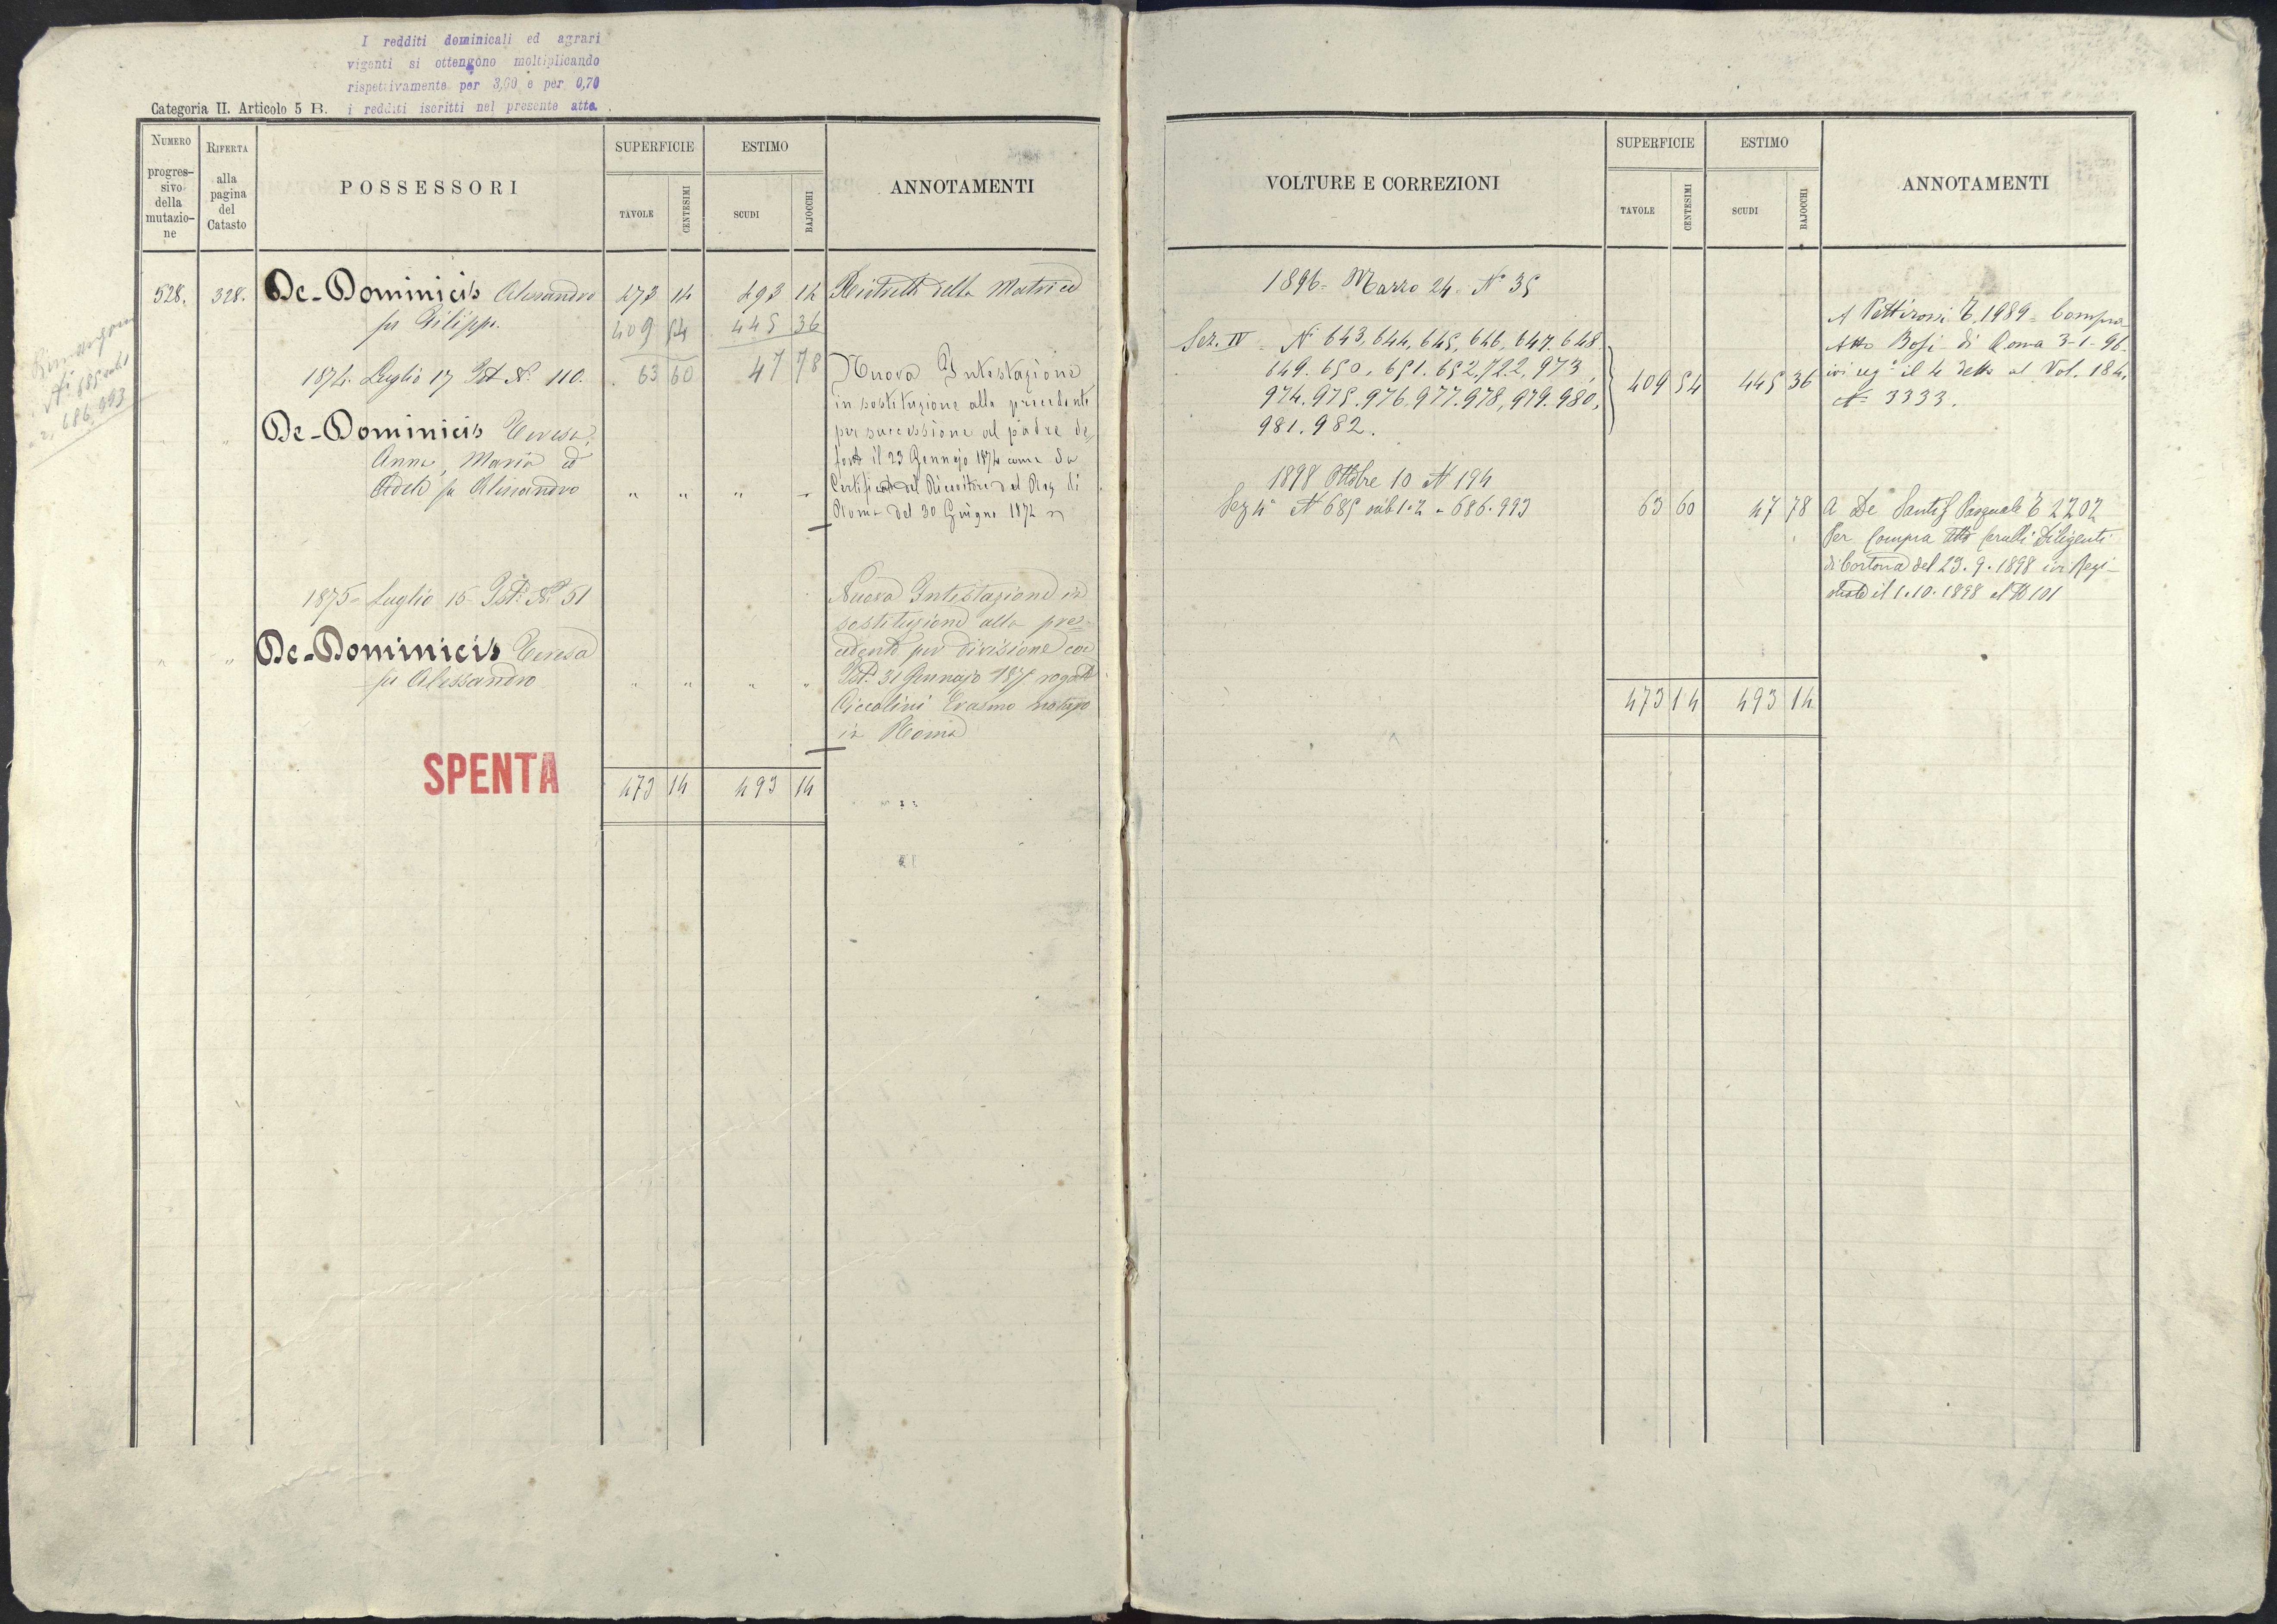 I redditi dominicali ed agrari
vigenti si ottengono moltiplicando
rispettivamente per 3,60 e per 0,70
i redditi iscritti nel presente atto.
Categoria II. Articolo 5 B.
NUMERO progressivo della mutazione
RIFERTA alla pagina del Catasto
POSSESSORI
SUPERFICIE
TAVOLE
CENTESIMI
ESTIMO
SCUDI
BAJOCCHI
ANNOTAMENTI
Rimangono
Ni 685 sub 1
2, 686, 993
528. 328. De-Dominicis Alessandro 473 14 493 14 Ristretto della Matrice
fu Filippo. 409 54 445 36
63 60 47 78
1874. Luglio 17 Ist N. 110.
Nuova Intestazione
in sostituzione alla precedente
De-Dominicis Teresa,
per successione al padre de
Anna, Maria ed
funto il 23 Gennajo 1874 come da
Adele fu Alessandro " " " "
Certificato del Ricevitore del Reg di
Roma del 30 Giugno 1874
1875- Luglio 15- Ist. N. 51
Nuova Intestazione in
sostituzione alla pre-
De-Dominicis Teresa
cedente per divisione come
fu Alessandro " " " "
Ist. 31 Gennajo 1875 rogato
Ciccolini Erasmo notajo
in Roma
SPENTA
473 14 493 14
VOLTURE E CORREZIONI
SUPERFICIE
TAVOLE
CENTESIMI
ESTIMO
SCUDI
BAJOCCHI
ANNOTAMENTI
1896- Marzo 24. N. 35
Sez. IV - N 643, 644, 645, 646, 647. 648.
649. 650, 651. 652, 722, 973,
974. 975. 976. 977. 978, 979. 980,
981. 982.
409 54 445 36
A Pettirossi 1989 - Compra
Atto Bosi di Roma 3-1-96.
ivi reg. il 4 detto al Vol. 184.
N. 3333.
1898 Ottobre 10 N 194
Sez 4 N 685 sub 1.2 - 686. 993 63 60 47 78
A De Santis Pasquale 2202
Per Compra Atto Diligenti
di Cortona del 23. 9. 1898 ivi Regi-
strato il 1. 10. 1898 al N 101
473 14 493 14